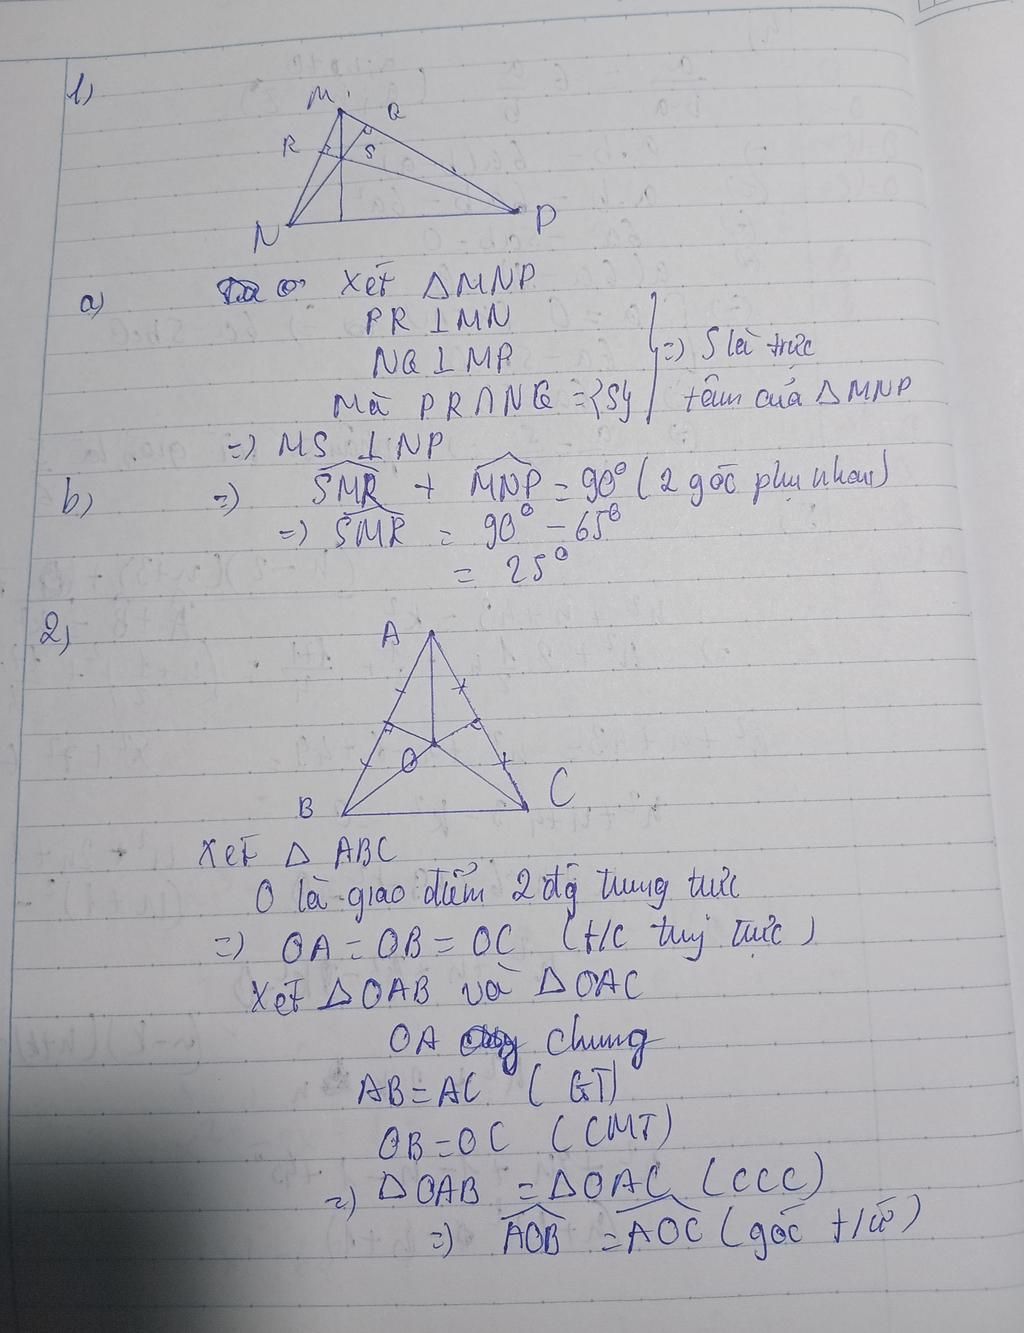 1)
M
Q
R
S
N
P
a) Xét ΔMNP
PR ⊥ MN
NQ ⊥ MP
Mà PR ∩ NQ = {S} => S là trực tâm của ΔMNP
=> MS ⊥ NP
b) => SMR + MNP = 90° (2 góc phụ nhau)
=> SMR = 90° - 65°
= 25°
2)
A
O
B
C
Xét Δ ABC
O là giao điểm 2 đg trung trực
=> OA = OB = OC (t/c trung trực)
Xét ΔOAB và ΔOAC
OA chung
AB = AC (GT)
OB = OC (CMT)
=> ΔOAB = ΔOAC (CCC)
=> AOB = AOC (góc t/ứ)